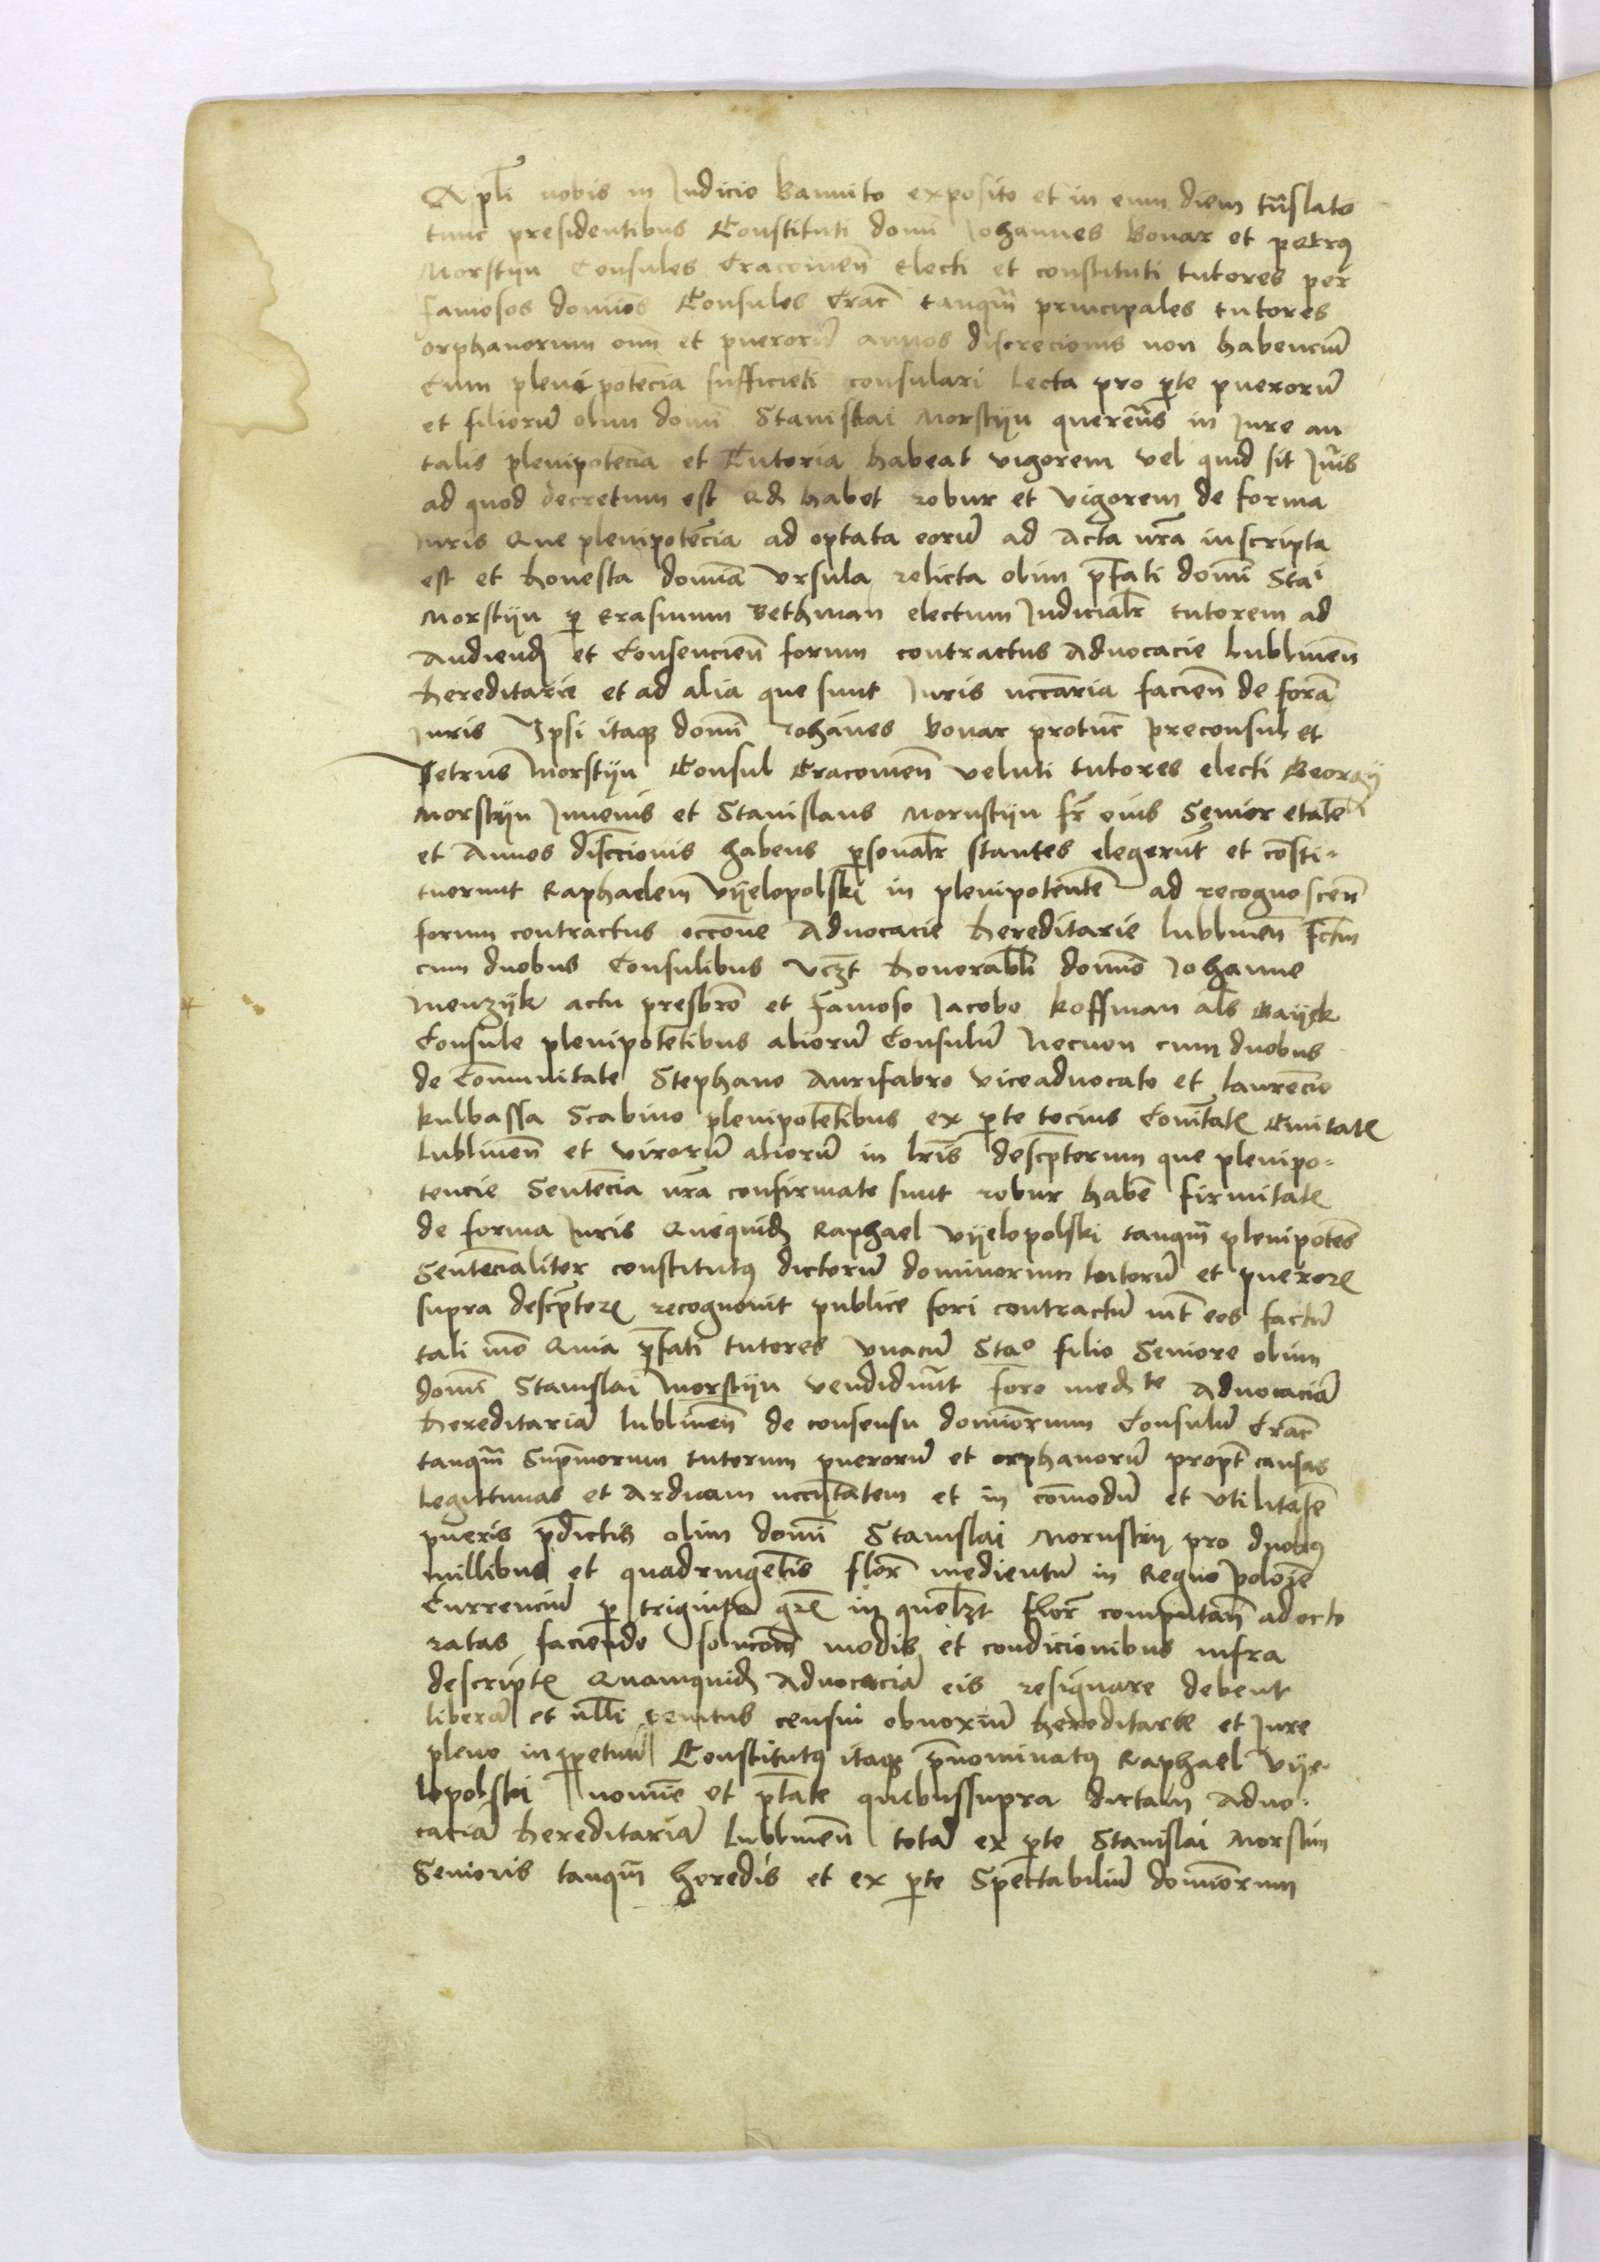 Apli nobis in Judicio bannito exposito et in eum diem tnslato
tunc presidentibus Constituti domi Johannes Bonar et petrus
Morstijn Consules Cracouien electi et constituti tutores per
famosos domios Consules Crac tanqm principales tutores
orphanorum oim et pueroru annos discrecionis non habenciu
Cum plenipotecia sufficieti consulari lecta pro pte pueroru
et filioru olim domi Stanislai Morstijn querentes in Jure an
talis plenipotecia et Tutoria habeat vigorem vel quid sit Juris
ad quod decretum est qd habet robur et vigorem de forma
Juris Que plenipotencia ad optata eoru ad Acta nra inscripta
est et honesta domia Vrsula relicta olim pfati domi Stai
Morstijn p Erasmum Bethman electum Judicialr tutorem ad
Audiend et Consencien forum contractus Aduocacie lublinen
hereditarie et ad alia que sunt Juris nccaria facien de forma
Juris Ipsi itaqz domi Johanes Bonar protunc preconsul et
Petrus Morstijn Consul Cracouien veluti tutores electi Georgij
Morstijn Juuenis et Stanislaus Mornstijn fr eius Senior etate
et Annos discrecionis habens psonalr stantes elegerut et consti-
tuerunt Raphaelem Vijelopolski in plenipotente ad recognoscen
forum contractus occone Aduocacie hereditarie lublinen fctm
cum duobus Consulibus vczt honorabli domino Johanne
Menzijk actu presbro et famoso Jacobo koffman als Bayek
Consule plenipotetibus alioru Consulu Necnon cum duobus
de Comunitate Stephano Aurifabro viceaduocato et laurencio
kulbassa Scabino plenipotetibus ex pte tocius Coitatis Ciuitatis
lublinen et viroru alioru in lris descptorum que plenipo-
tencie Sentencia nra confirmate sunt robur habe firmitatis
de forma Juris Quequid Raphael Vijelopolski tanqm plenipotens
Sentencialiter constitutus dictoru dominorum tutoru et pueroru
supra descptoru recognouit publice fori contractu int eos factu
tali mo Quia pfati tutores vnacu Stao filio Seniore olim
domi Stanislai Morstijn vendiderut foro medte Aduocacia
hereditaria lublinen de consensu dominorum Consulu Crac
tanqm Supmorum tutorum pueroru et orphanoru propt causas
legittimas et Arduam nccitatem et in comodu et vtilitate
pueris pdictis olim domi Stanislai Mornstijn pro duobus
millibus et quadringetis flor medientu in Regno polonie
Currenciu p triginta gros in quelzt flor computan ad octo
ratas faciendo solucom modis et condicionibus infra
descriptis Quamquid Aduocacia eis resignare debent
libera et nlli penitus censui obnoxiu hereditarie et Jure
pleno inppetuu Constitutus itaqz pnominatus Raphael Vije-
lopolski nomine et ptate quibussupra dictam Aduo-
cacia hereditaria lublinen tota ex pte Stanislai Morstin
Senioris tanqm heredis et ex pte Spectabiliu dominorum